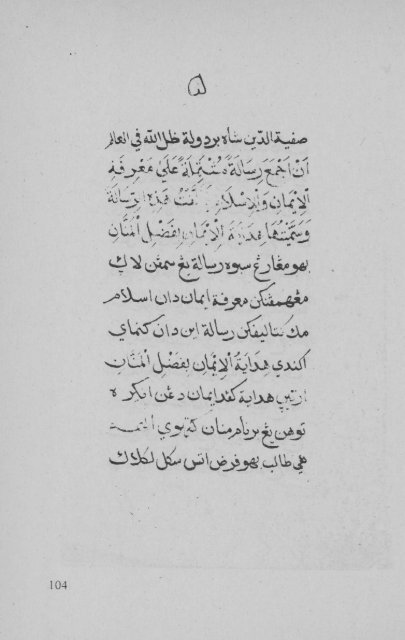 صفية الدين شاه بردولة ظل الله في العالم
اَنْ اَجْمَعَ رِسَالَةً مُشْتَمِلَةً عَلَى مَعْرِفَةِ
الْاِيْمَانِ وَالْاِسْلَامِ هَذِهِ الرِّسَالَةَ
وَسَمَّيْتُهَا هِدَايَةَ الْاِيْمَانِ بِفَضْلِ الْمَنَّانِ
بهو مڠارڠ سوه رسالة يڠ سمڤن لاݢ
مڠهمڤنكن معرفة ايمان دان اسلام
مك كتاليفكن رسالة اين دان كنماي
اكندي هِدَايَةُ الْاِيْمَانِ بِفَضْلِ الْمَنَّانِ
ارتيڽ هداية كڤد ايمان دڠن انݢره
توهن يڠ برنام منان
هي طالب بهو فرض اتس سكل
104